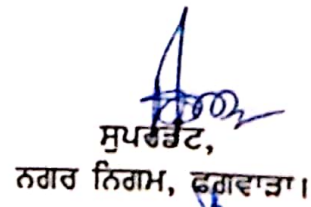 ਸੁਪਰਡੈਂਟ,
ਨਗਰ ਨਿਗਮ, ਫਗਵਾੜਾ।